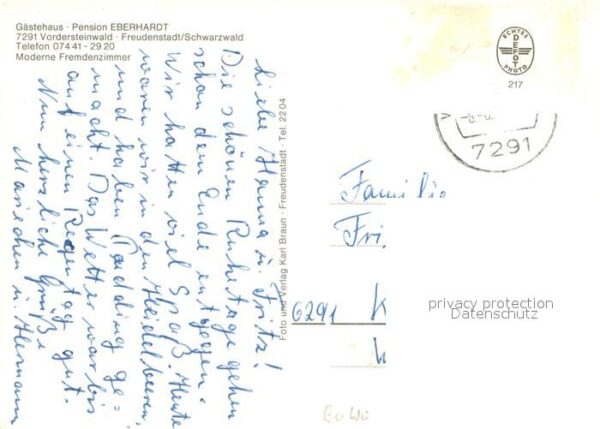 Gästehaus · Pension EBERHARDT
7291 Vordersteinwald · Freudenstadt/Schwarzwald
Telefon 0 74 41 - 29 20
Moderne Fremdenzimmer
Liebe Hanna u. Fritz!
Die schönen Ruhetage gehen
schon dem Ende entgegen.
Wir hatten viel Spaß. Heute
waren wir in den Heidelbeeren
und haben Pudding ge=
macht. Das Wetter war bis
auf einen Regentag gut.
Nun herzliche Grüße
Mariechen u. Hermann
Foto und Verlag Karl Braun · Freudenstadt · Tel. 22 04
ECHTES
DEFOT
PHOTO
217
7291
Familie
Fri
6291 K
privacy protection
Datenschutz